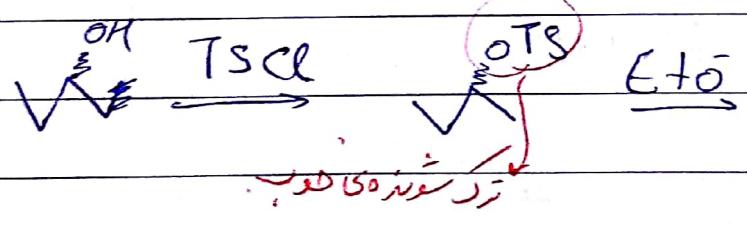 OH TSCl OTS EtO⁻
ترک شونده‌ی خوب